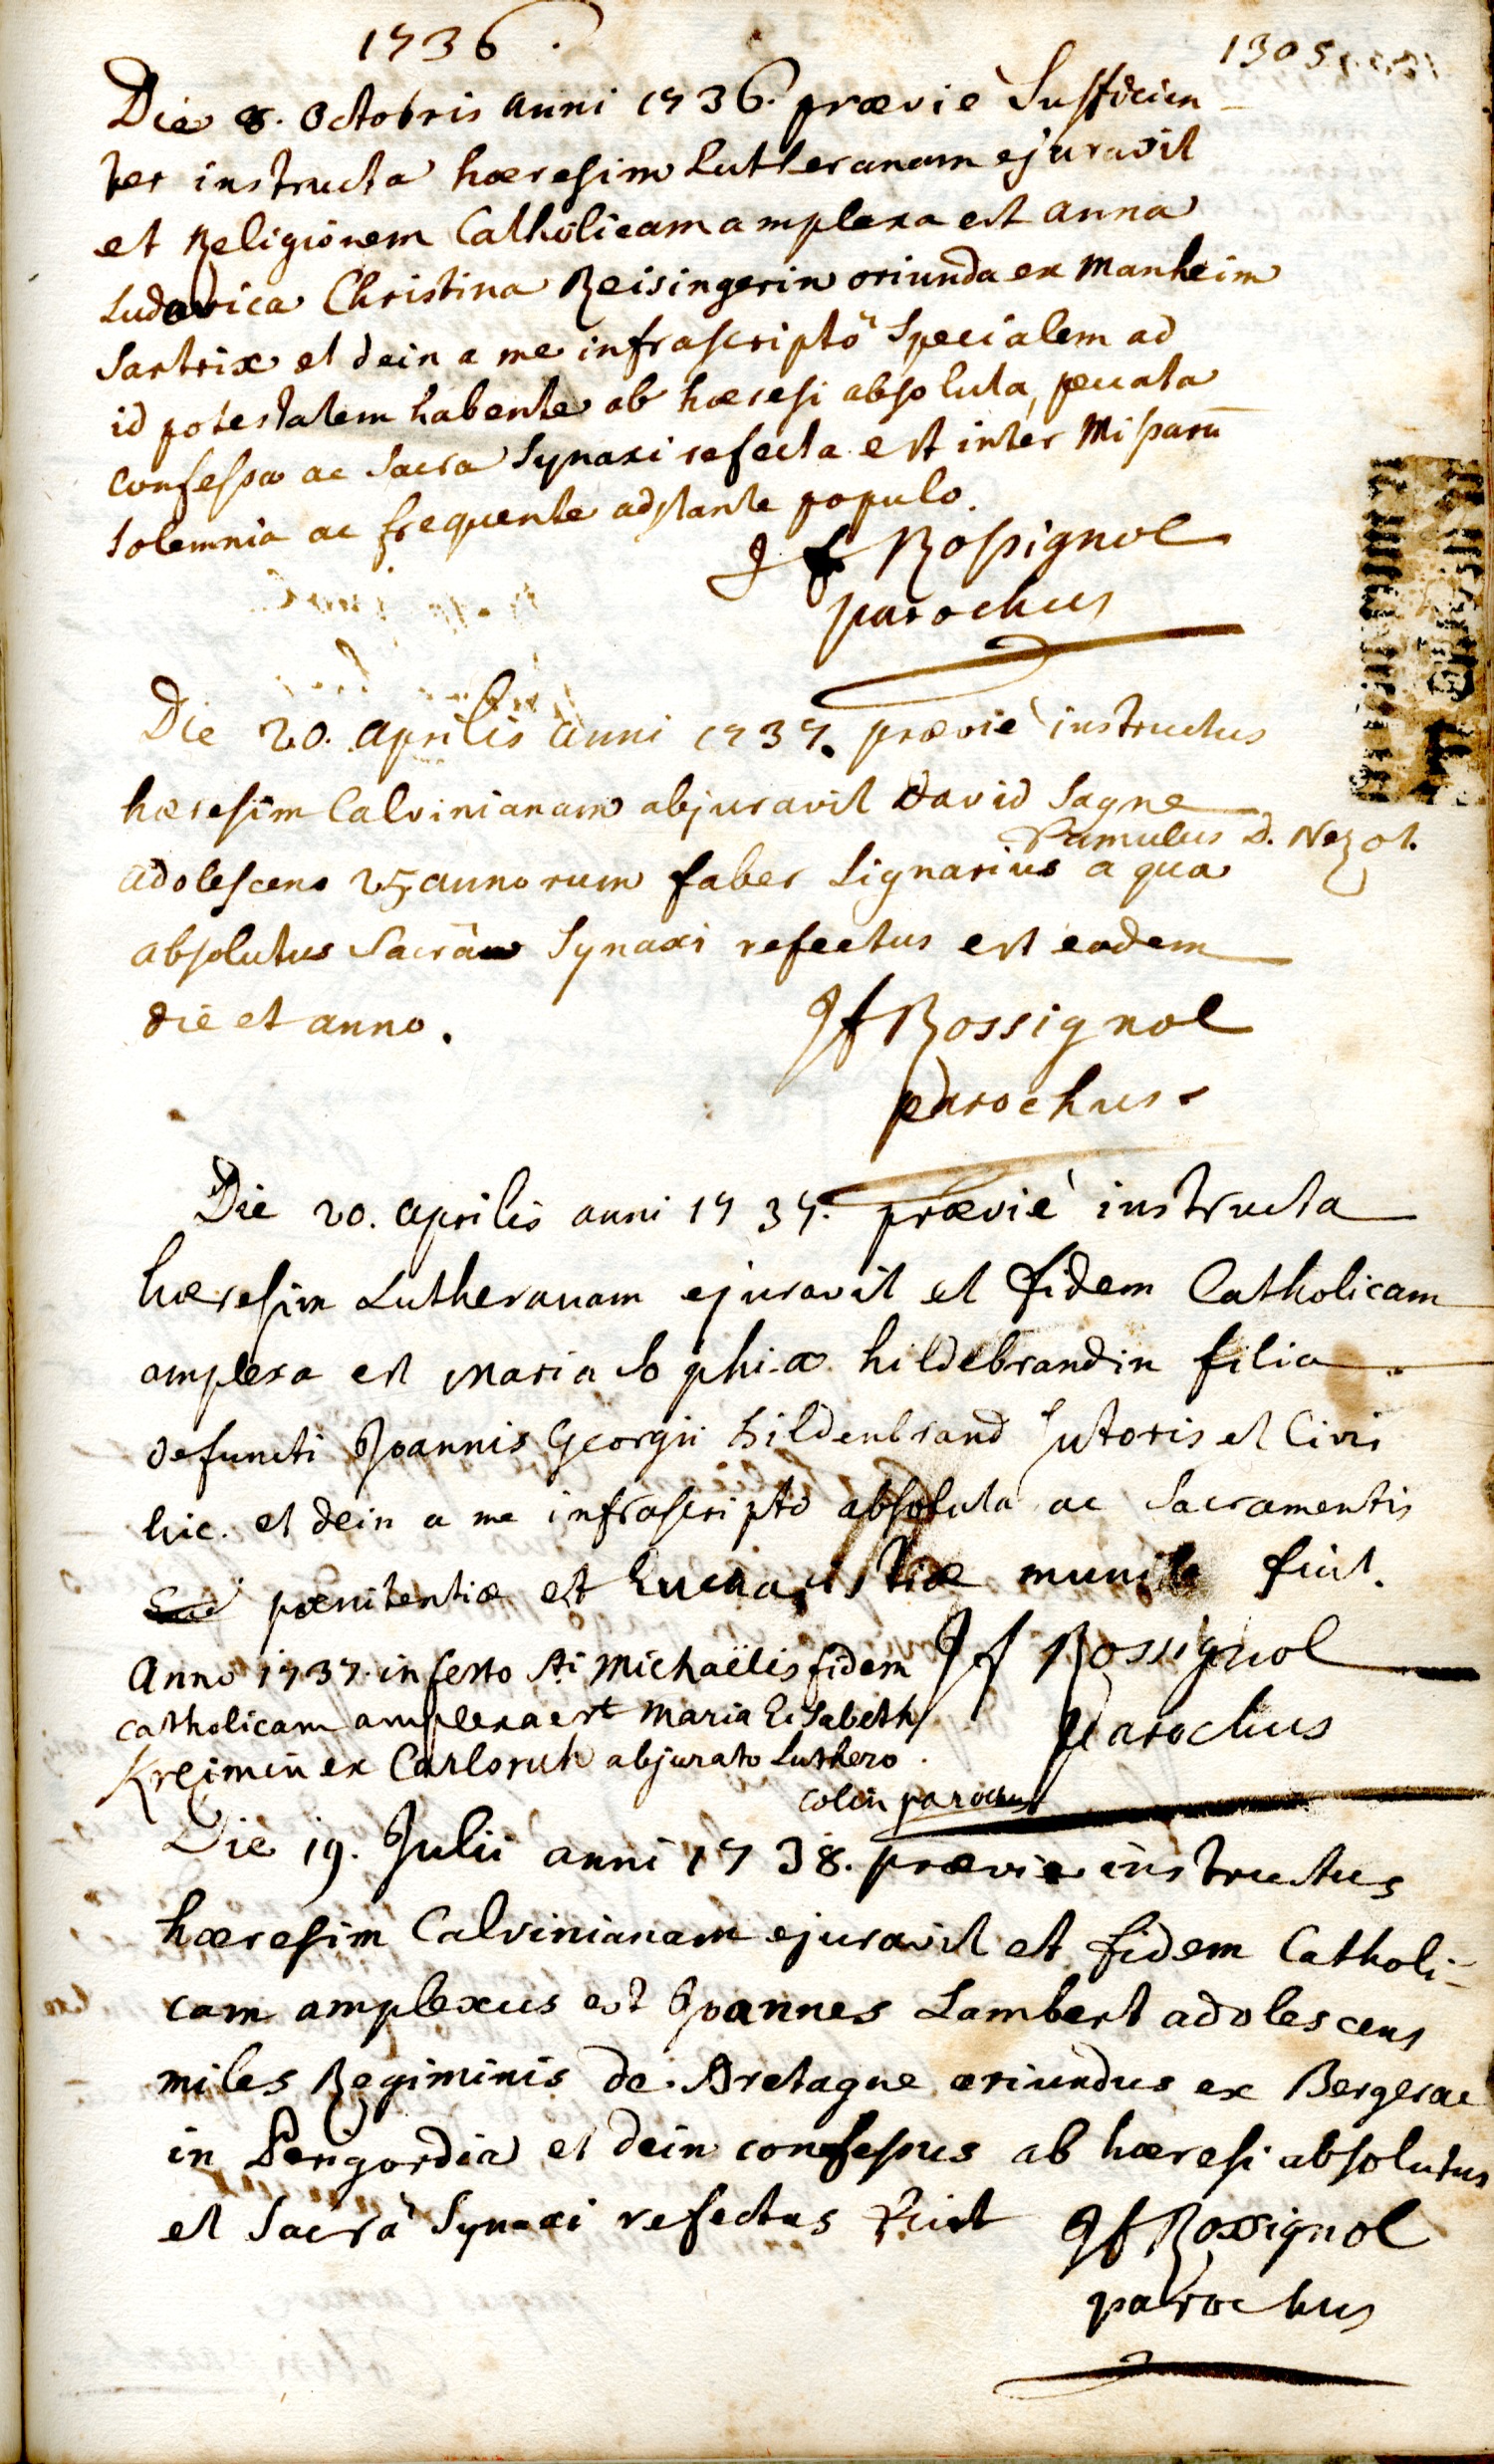 1736.
1305
Die 8. Octobris anni 1736. prævie Sufficien-
ter instructa hæresim Lutheranam ejuravit
et Religionem Catholicam amplexa est anna
Ludovica Christina Reisingerin oriunda ex Manheim
Sartrix et dein a me infrascripto Specialem ad
id potestatem habente ab hæresi absoluta, peccata
confessa ac Sacra Synaxi refecta est inter Missarū
Solemnia ac frequente adstante populo.
J f Rossignol
parochus
Die 20. aprilis anni 1737. prævié instructus
hæresim Calvinianam abjuravit david Sagne
famulus D. Nezot.
adolescens 25 annorum faber Lignarius a qua
absolutus Sacrâ Synaxi refectus est eadem
die et anno.
Jf Rossignol
parochus.
Die 20. aprilis anni 1737. prævié instructa
hæresim Lutheranam ejuravit et fidem Catholicam
amplexa est Maria Sophia hildebrandin filia
defuncti Joannis Georgii hildenbrand Sutoris et Civis
hic. et dein a me infrascripto absoluta ac Sacramentis
pœnitentiæ et Eucharistiæ munita fuit.
Jf Rossignol
parochus
Anno 1737. in festo Sti Michaëlis fidem
catholicam amplexa est Maria Elisabeth
Kreimin ex Carlsruh abjurato Luthero.
Colin parochus
Die 19. Julii anni 1738. prævie instructus
hæresim Calvinianam ejuravit et fidem Catholi-
cam amplexus est Joannes Lambert adolescens
miles Regiminis de Bretagne oriundus ex Bergerac
in Perigordia et dein confessus ab hæresi absolutus
et Sacrâ Synaxi refectus fuit
Jf Rossignol
parochus